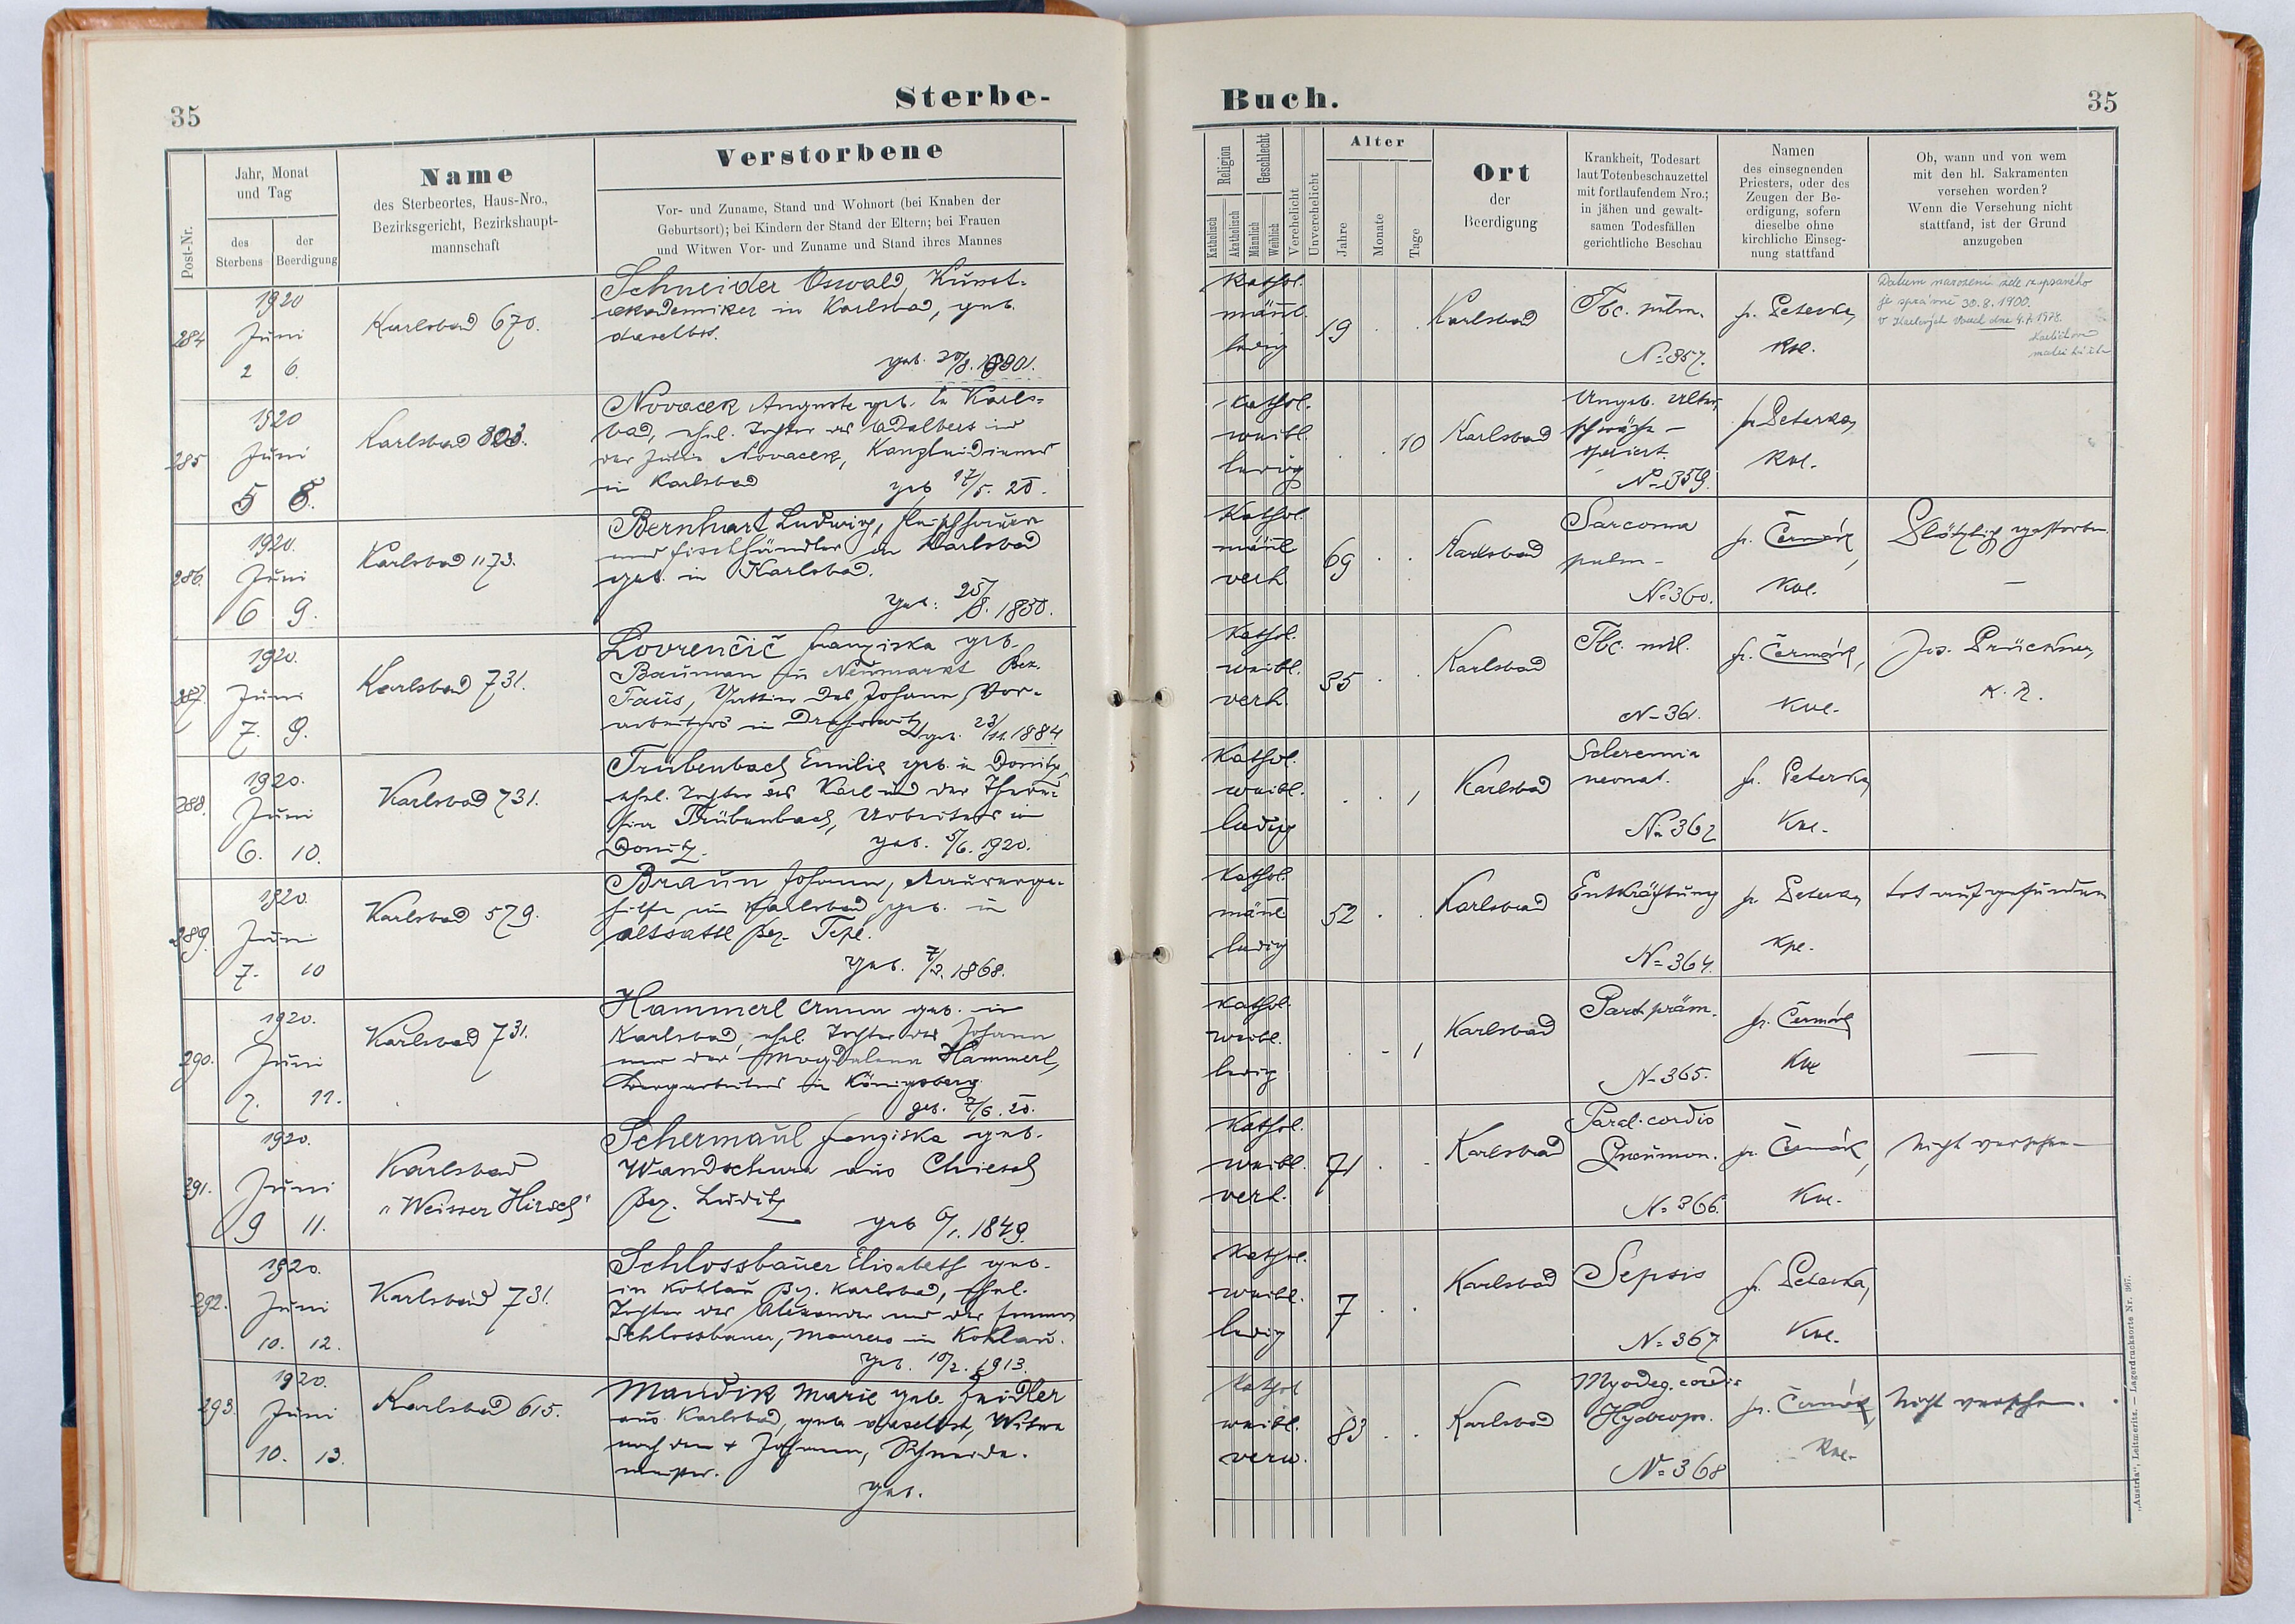 35
Sterbe-
Post-Nr.
Jahr, Monat
und Tag
des
Sterbens
der
Beerdigung
Name
des Sterbeortes, Haus-Nro.,
Bezirksgericht, Bezirkshaupt-
mannschaft
Verstorbene
Vor- und Zuname, Stand und Wohnort (bei Knaben der
Geburtsort); bei Kindern der Stand der Eltern; bei Frauen
und Witwen Vor- und Zuname und Stand ihres Mannes
284
1920
Juni
2 6.
Karlsbad 670.
Schneider Oswald, Kunst-
akademiker in Karlsbad, geb.
daselbst.
285
1920
Juni
5 8.
Karlsbad
Novacek Auguste geb. in Karls-
bad, ehel. Tochter des Adalbert und
der Julie Novacek, Kanzleidieners
in Karlsbad geb 27/5. 20.
286.
1920.
Juni
6 9.
Karlsbad 1173.
Bernhart Ludwig, Fleischhauer
und Fischhändler in Karlsbad
geb. in Karlsbad.
geb: 25/8. 1850.
287.
1920.
Juni
7. 9.
Karlsbad 731.
Lovrenčič Franziska geb.
Bauman in Neumarkt Bez.
Taus, Gattin des Johann, Vor-
arbeiters in
geb. 23/11. 1884
288.
1920.
Juni
6. 10.
Karlsbad 731.
Trübenbach Emilie geb. in Donitz,
ehel. Tochter des Karl und der There-
sia Trübenbach, Arbeiters in
Donitz. geb. 5/6. 1920.
289.
1920.
Juni
7. 10
Karlsbad 579.
Braun Johann, Maurerge-
hilfe in Karlsbad, geb. in
Altsattl Bez. Tepl.
geb. 7/3. 1868.
290.
1920.
Juni
7. 11.
Karlsbad 731.
Hammerl Anna geb. in
Karlsbad, ehel. Tochter des Johann
und der Magdalena Hammerl,
Bergarbeiters in Königsberg.
geb. 7/6. 20.
291.
1920.
Juni
9 11.
Karlsbad
"Weisser Hirsch"
Schermaul Franziska geb.
Wandschura aus Chiesch
Bez. Luditz
geb 6/1. 1849.
292.
1920.
Juni
10. 12.
Karlsbad 731.
Schlossbauer Elisabeth geb.
in Kohlau Bez. Karlsbad, ehel.
Tochter des Alexander und der Emma
Schlossbauer, Maurers in Kohlau.
geb. 10/2. 1913.
293.
1920.
Juni
10. 13.
Karlsbad 615.
Mandik Marie geb. Zeidler
aus Karlsbad, geb. daselbst, Witwe
nach dem + Johann, Schneider-
meister.
geb.
Buch.
35
Religion
Katholisch
Akatholisch
Geschlecht
Männlich
Weiblich
Verehelicht
Unverehelicht
Alter
Jahre
Monate
Tage
Ort
der
Beerdigung
Krankheit, Todesart
laut Totenbeschauzettel
mit fortlaufendem Nro.;
in jähen und gewalt-
samen Todesfällen
gerichtliche Beschau
Namen
des einsegnenden
Priesters, oder des
Zeugen der Be-
erdigung, sofern
dieselbe ohne
kirchliche Einseg-
nung stattfand
Ob, wann und von wem
mit den hl. Sakramenten
versehen worden?
Wenn die Versehung nicht
stattfand, ist der Grund
anzugeben
kathol.
männl.
ledig
19
Karlsbad
Tbc. pulm.
No 357.
fr. Peterka,
Kpl.
Datum narození zde zapsaného
je správně 30.8.1900.
V Karlových Varech dne 4.7.1978.
kathol.
weibl.
ledig
10
Karlsbad
Angeb. Leben-
schwäche -
No 359.
fr Peterka,
Kpl.
kathol.
männl
verh
69
Karlsbad
Sarcoma
pulm -
No 360.
fr. Čermák,
Kpl.
Plötzlich gestorben.
kathol.
weibl.
verh.
35
Karlsbad
Tbc. mil.
No 361.
fr. Čermák,
Kpl.
Jos. Prückner,
kathol.
weibl.
ledig
1
Karlsbad
Scleremia
neonat.
No 362
fr. Peterka,
Kpl.
kathol.
männl
ledig
52
Karlsbad
Entkräftung
No 364.
fr. Peterka,
Kpl.
tot aufgefunden
kathol.
weibl.
ledig
1
Karlsbad
Part. präm.
No 365.
fr. Čermák
Kpl
kathol.
weibl.
verh.
71
Karlsbad
Paral. cordis
Pneumon.
No 366.
fr. Čermák,
Kpl.
Nicht versehen
kathol.
weibl.
ledig
7
Karlsbad
Sepsis
No 367
fr. Peterka,
Kpl.
kathol
weibl.
verw.
83
Karlsbad
Myodeg. cordis
Hydrops.
No 368
fr. Čermák,
Kpl.
Nicht versehen.
„Austria“, Leitmeritz. — Lagerdrucksorte Nr. 967.